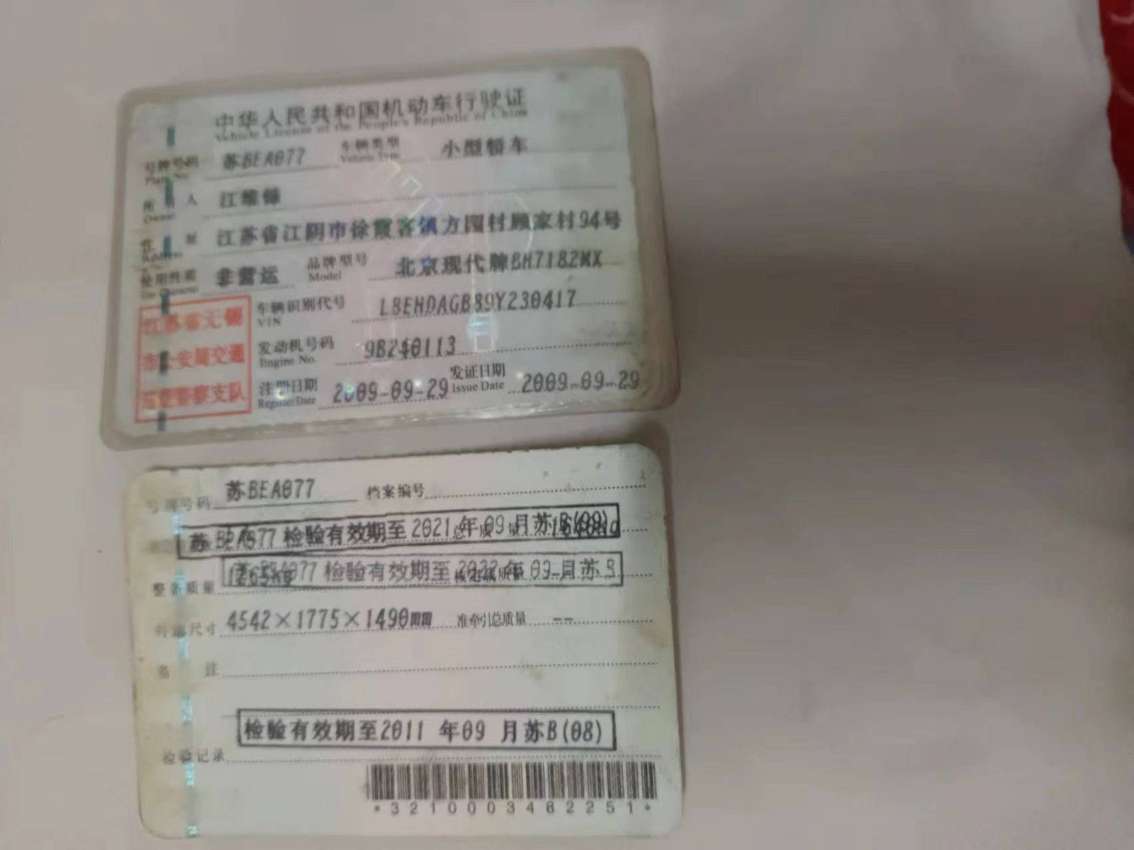 中华人民共和国机动车行驶证
Vehicle License of the People's Republic of China
号牌号码 苏BEA077 车辆类型 小型轿车
Plate No. Vehicle Type
所有人 江维锦
Owner
住址 江苏省江阴市徐霞客镇方园村顾家村94号
Address
使用性质 非营运 品牌型号 北京现代牌BH7182MX
Use Character Model
车辆识别代号 LBEHDAGB89Y230417
VIN
江苏省无锡
市公安局交通
巡逻警察支队
发动机号码 9B240113
Engine No.
注册日期 2009-09-29 发证日期 2009-09-29
Register Date Issue Date
号牌号码 苏BEA077 档案编号
苏BEA077 检验有效期至 2021 年 09 月苏B(08)
整备质量 检验有效期至 2022 年 09 月苏B
外廓尺寸 4542×1775×1490mm 准牵引总质量 --
备注
检验有效期至2011 年09 月苏B(08)
检验记录
*3210003482251*